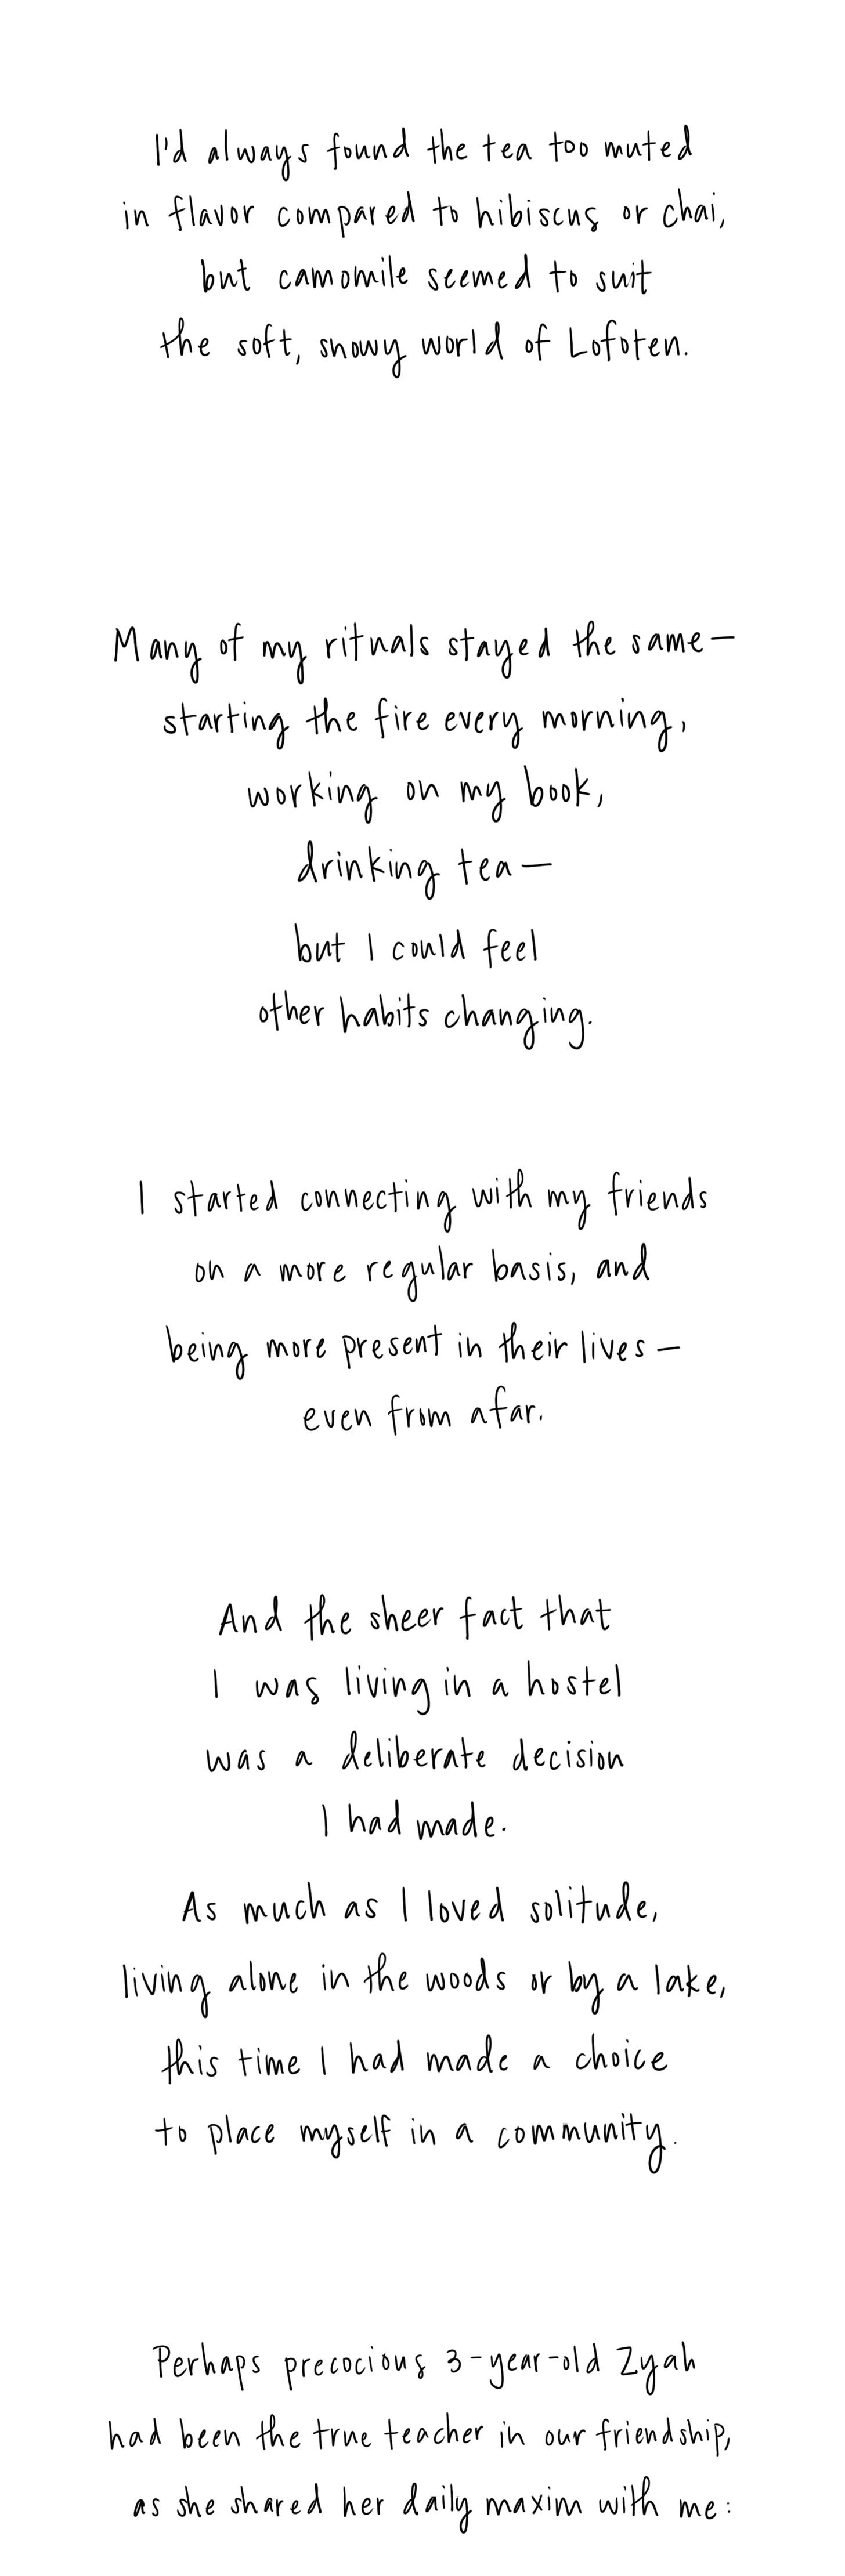 I'd always found the tea too muted
in flavor compared to hibiscus or chai,
but camomile seemed to suit
the soft, snowy world of Lofoten.
Many of my rituals stayed the same—
starting the fire every morning,
working on my book,
drinking tea—
but I could feel
other habits changing.
I started connecting with my friends
on a more regular basis, and
being more present in their lives—
even from afar.
And the sheer fact that
I was living in a hostel
was a deliberate decision
I had made.
As much as I loved solitude,
living alone in the woods or by a lake,
this time I had made a choice
to place myself in a community.
Perhaps precocious 3-year-old Zyah
had been the true teacher in our friendship,
as she shared her daily maxim with me: